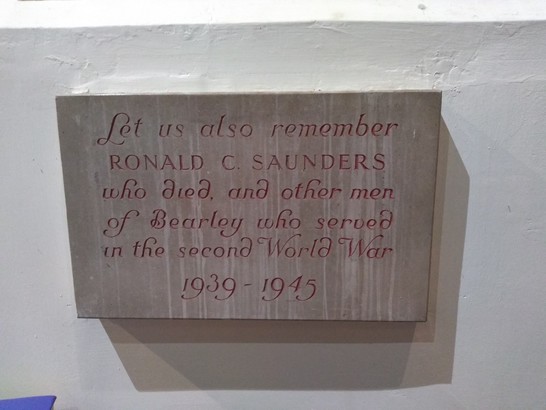 Let us also remember
RONALD C. SAUNDERS
who died, and other men
of Bearley who served
in the second World War
1939 - 1945